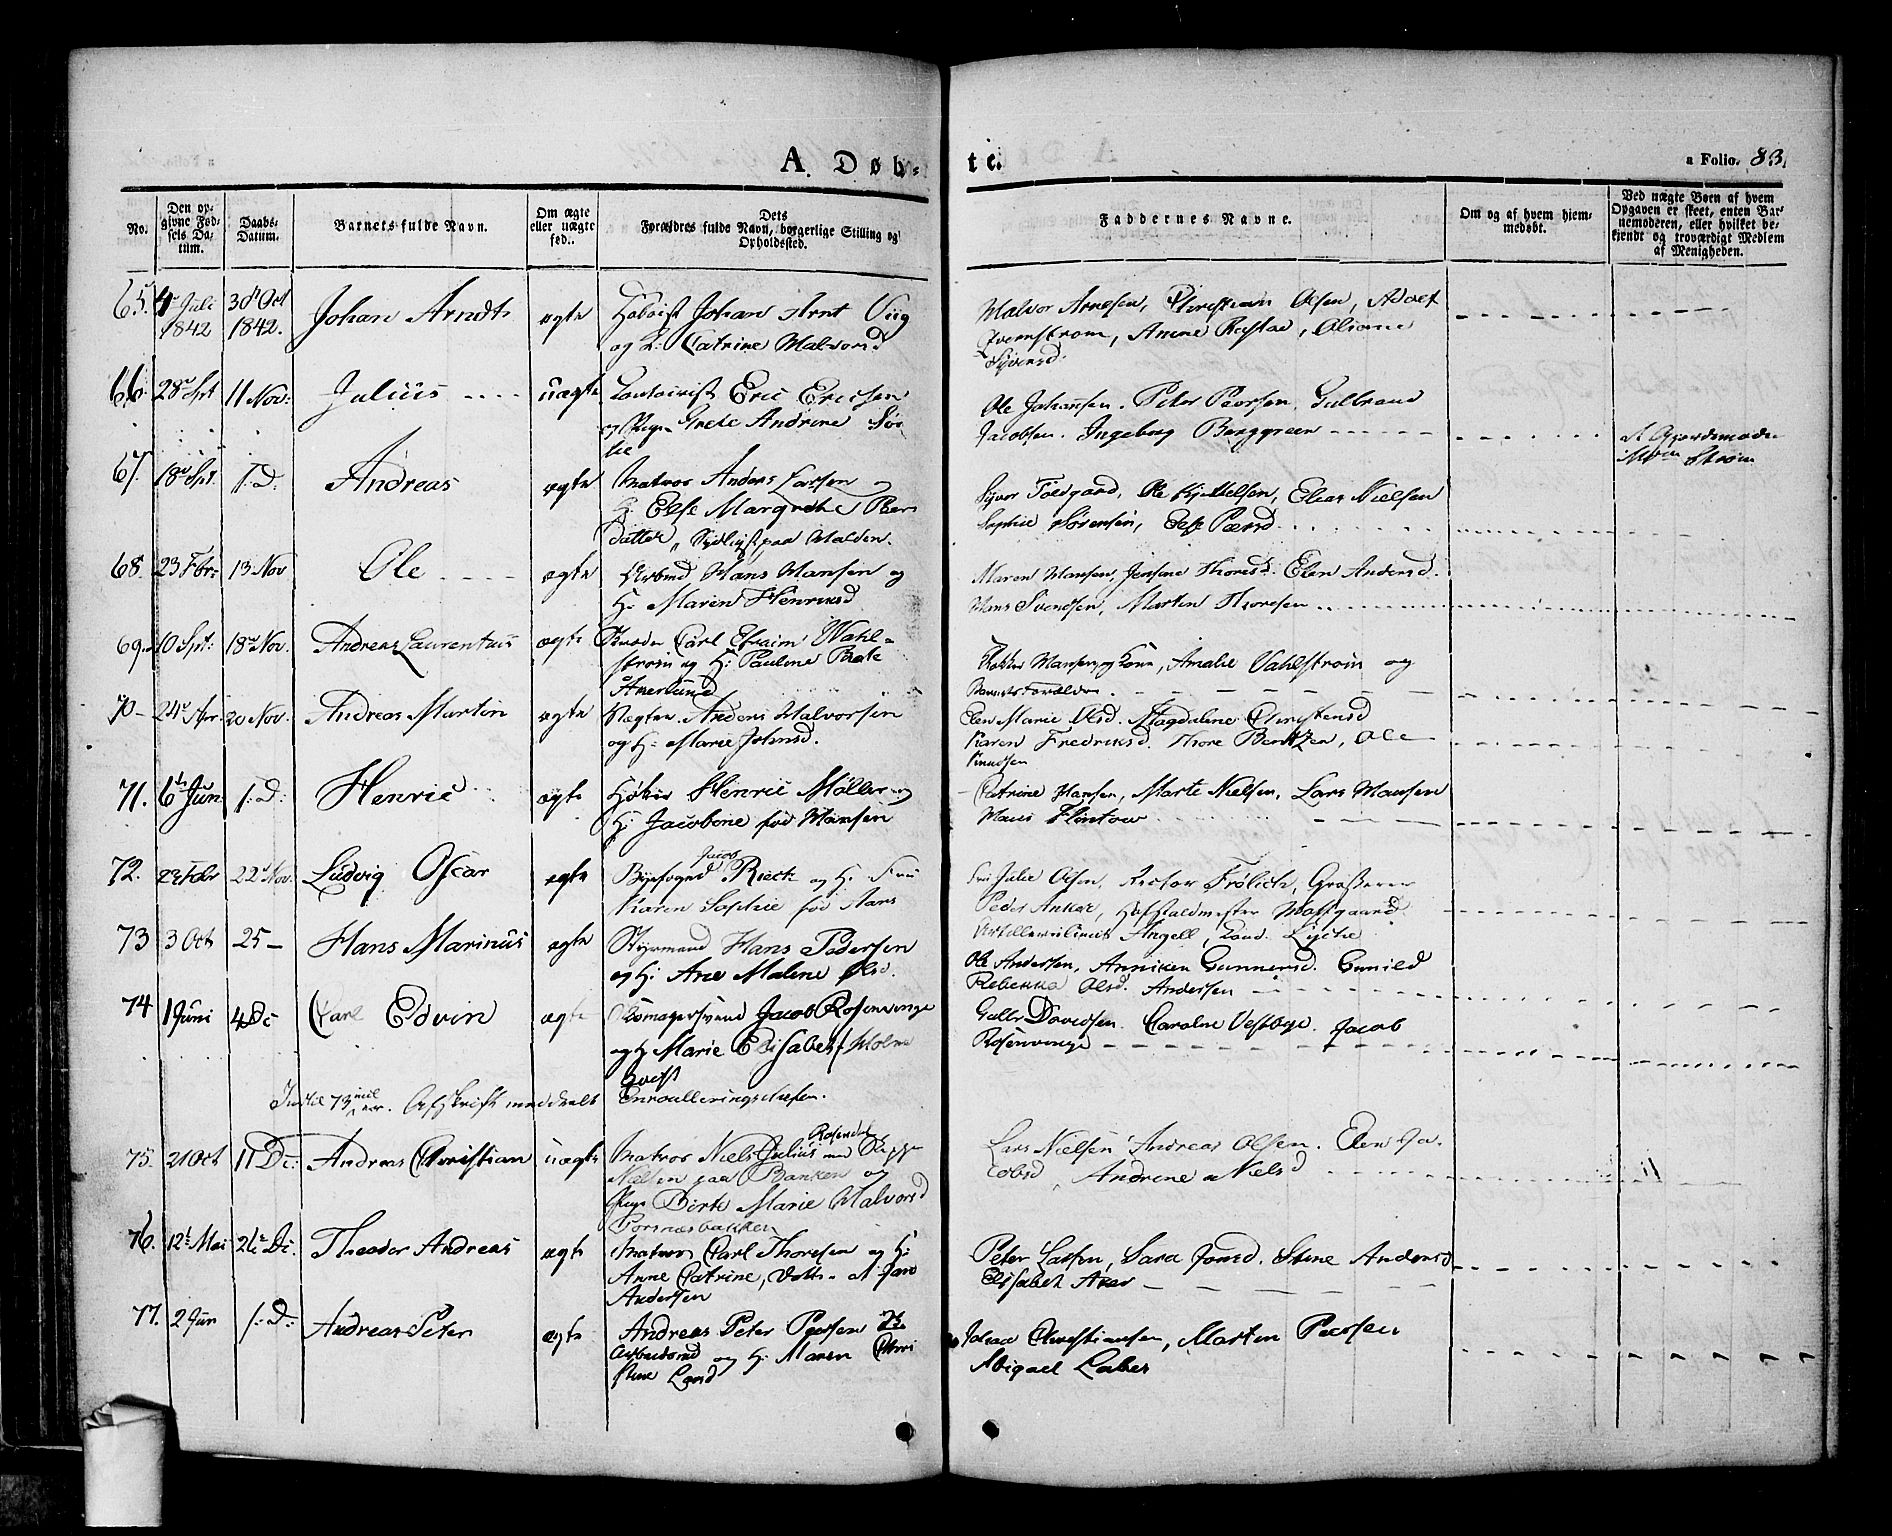 A. Døb-
te.
a Folio. 83.
No.
Den op-
givne Fød-
sels Da-
tum.
Daabs-
Datum.
Barnets fulde Navn.
Om ægte
eller uægte
fød.
Dets
Forældres fulde Navn, borgerlige Stilling og
Opholdssted.
Faddernes Navne.
Om og af hvem hjem-
medøbt.
Ved uægte Børn af hvem
Opgaven er skeet, enten Bar-
nemoderen, eller hvilket be-
kjendt og troværdigt Medlem
af Menigheden.
65. 4 Juli 1842
30 Oct 1842.
Johan Arndt
ægte
Johan Arnt
og H: Catrine Halvorsd
Halvor Arnesen, Christian Olsen,
Qvernstrom, Anine Rustad, Oliane
Syversd:
66. 28 Spt 11 Nov:
Julius
uægte
Eric Ericsen
og Pige Grete Andrine
Ole Johansen. Peter Peersen. Gulbrand
Jacobsen. Ingeborg Berggreen
Gjordemoder
Strøm
67. 18 Spt. 1. D:
Andreas
ægte
Matros Anders Larsen og
H: Else Margrethe Peers
Datter,
Syver Ole Kjeldsen, Elias Nielsen
Sophie Sørensen, Else Peersd
68. 23 Fbr: 13 Nov
Ole
ægte
Arbmd Hans Hansen og
H: Maren Henriksd
Maren Hansen, Jensine Thoresd. Elen Andersd.
Hans Svendsen, Martin Thoresen
69. 10 Spt: 18 Nov.
Andreas Laurentius
ægte
Carl Efraim Wahl-
strøm og H: Pauline
Akerlund
Hansen og Kone, Amalie Vahlstrøm og
Barnets Forældre
70 - 24 20 Nov.
Andreas Martin
ægte
Vægter Anders Halvorsen
og H: Marie Johnsd.
Elen Marie Olsd. Magdalene Christensd
Karen Fredriksd. Thore Bentzen, Ole
Knudsen
71. 6 Jun 1. D:
Henric
ægte
Høker Henric Møller og
H: Jacobine fød Hansen
Catrine Hansen, Marte Nielsen, Lars Hansen
Hans Flintow
72. 23 Febr 22 Nov.
Ludvig Oscar
ægte
Byefoged Jacob Rieck og H. Fru
Karen Sophie fød Aars
Julie Olsen, Rector Frølich, Grosserer
Peder Anker, Hofstaldmester
Angell,
73 3 Oct 25 -
Hans Marinus
ægte
Styrmand Hans Pedersen
og H: Ane Malene Olsd.
Ole Andersen, Anniken Gunnersd. Gunild
Rebekka Olsd. Andersen
74 1 Juni 4 Dc
Carl Edvin
ægte
Jacob Rosenvinge
og H Marie Elisabet Holm
qvist
Davidsen. Caroline Vestbye. Jacob
Rosenvinge
73 Afskrift meddeelt
Enroulleringschefen.
75. 21 Oct 11 Dc:
Andreas Christian
uægte
Matros Niels Julius Rosendal
Nielsen paa Banken og
Pige Birte Marie Halvorsd
Torsnæsbakken
Lars Nielsen Andreas Olsen. Elen Ja-
cobsd, Andrine Nielsd
76. 12 Mai 26 Dc.
Theodor Andreas
ægte
Matros Carl Thoresen og H:
Anne Catrine,
Andersen
Peter Larsen, Sara Jonsd. Stine Andersd
Elisabet Aker
77. 2 Jun 1. D:
Andreas Peter
ægte
Andreas Peter Peersen
Arbeidsmd og H: Maren Chri
stine Larsd
Johan Christiansen, Martin Peersen
Abigael